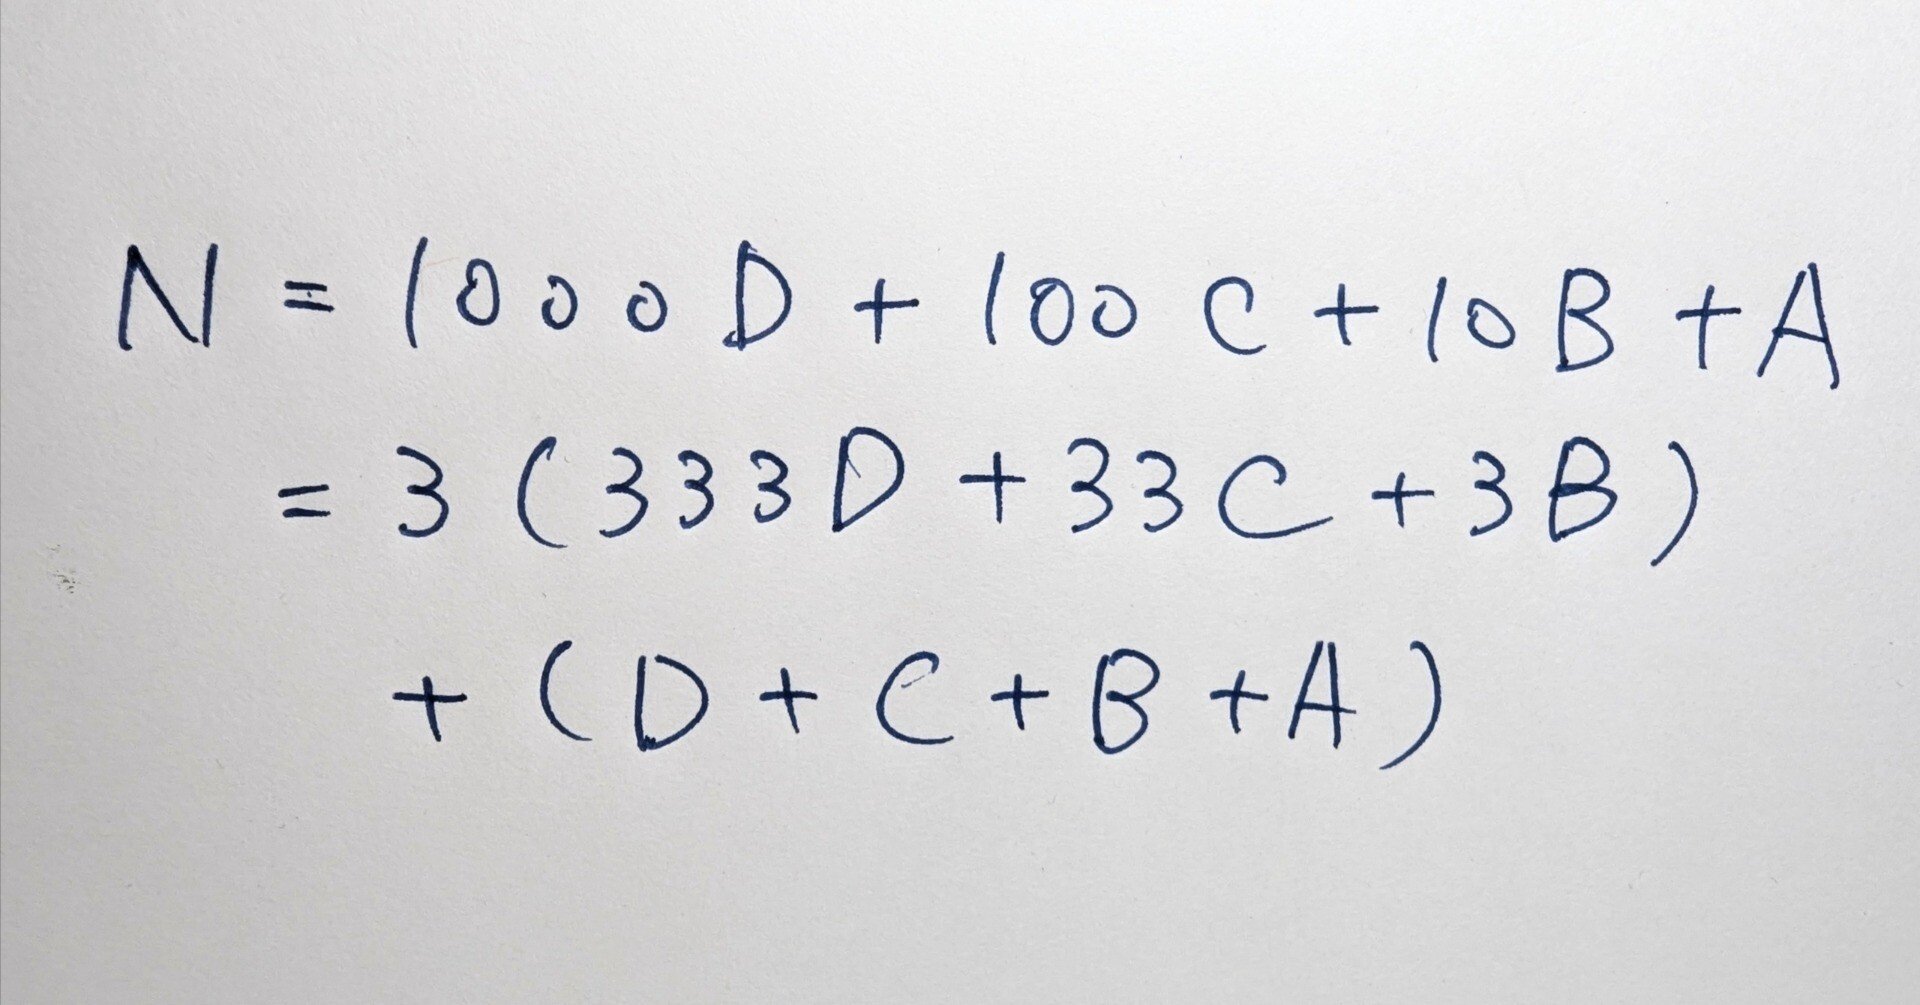 N = 1000D + 100C + 10B + A
= 3(333D + 33C + 3B)
+ (D + C + B + A)